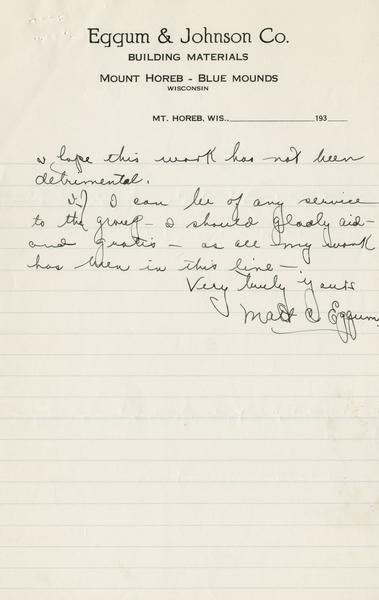 Eggum & Johnson Co.
BUILDING MATERIALS
MOUNT HOREB - BLUE MOUNDS
WISCONSIN
MT. HOREB, WIS., 193
I hope this work has not been
detrimental.
If I can be of any service
to the group - I should gladly aid -
and gratis - as all my work
has been in this line -.
Very truly yours
Matt C Eggum